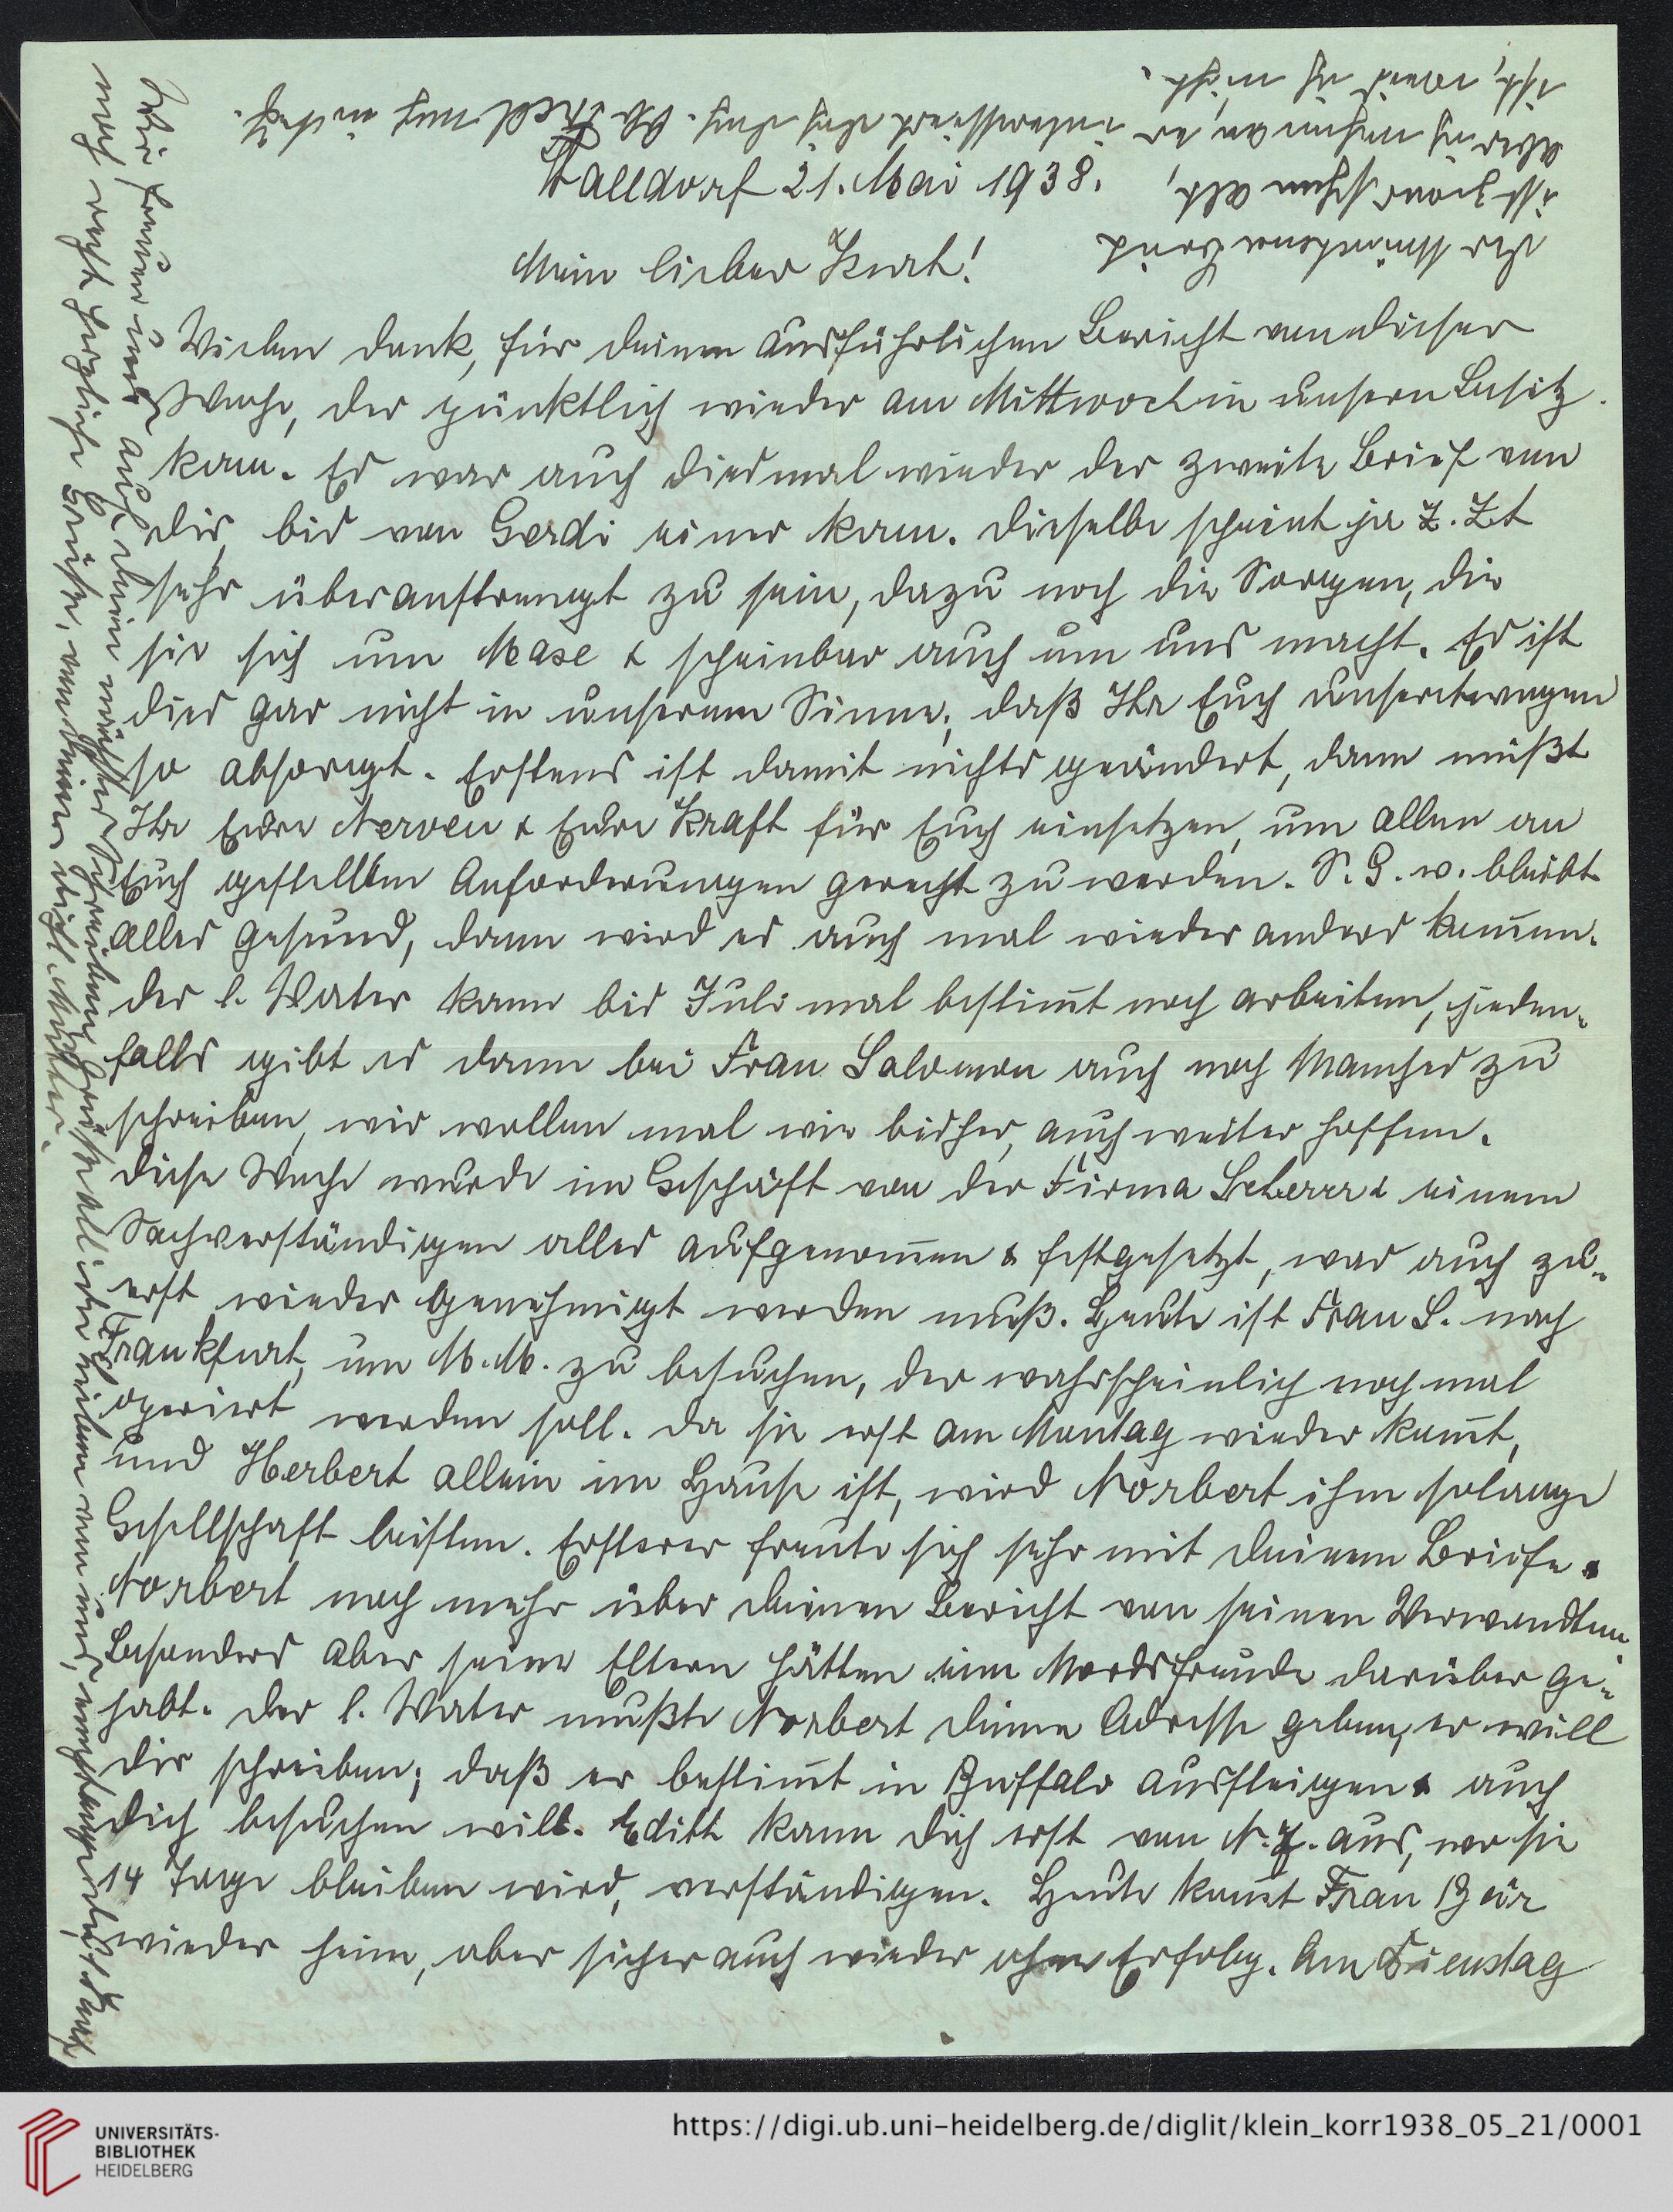 Walldorf 21. Mai 1938.
Mein lieber Kurt!
Vielen Dank, für deinen ausführlichen Bericht von dieser
Woche, der pünktlich wieder am Mittwoch in unsern Besitz
kam. Es war auch diesmal wieder der zweite Brief von
dir, bis von Gerdi einer kam. Dieselbe scheint ja z. Zt
sehr überanstrengt zu sein, dazu noch die Sorgen, die
sie sich um Mase & scheinbar auch um uns macht. Es ist
dies gar nicht in unserem Sinne, daß Ihr Euch unseretwegen
so absorgt. Erstens ist damit nichts geändert, dann müßt
Ihr Eure Nerven & Eure Kraft für Euch einsetzen, um allen an
Euch gestellten Anforderungen gerecht zu werden. S. G. w. bleibt
alles gesund, dann wird es auch mal wieder anders kommen.
Der l. Vater kann bis Juli mal bestimt noch arbeiten, jeden-
falls gibt es dann bei Frau Salomon auch noch Manches zu
schreiben, wir wollen mal wie bisher, auch weiter hoffen.
Diese Woche wurde im Geschäft von der Firma & einem
Sachverständigen alles aufgenommen & festgesetzt, was auch zu-
erst wieder genehmigt werden muß. Heute ist Frau S. nach
Frankfurt, um M. M. zu besuchen, der wahrscheinlich nochmal
operiert werden soll. Da sie erst am Montag wieder kommt,
und Herbert allein im Hause ist, wird Norbert ihm solange
Gesellschaft leisten. Ersterer freute sich sehr mit deinem Briefe &
Norbert noch mehr über deinen Bericht von seinen Verwandten
Besonders aber seine Eltern hätten eine Mordsfreude darüber ge-
habt. Der l. Vater mußte Norbert deine Adresse geben, er will
dir schreiben; daß er bestimt in Buffalo aussteigen & auch
dich besuchen will. Edith kann dich erst von N. Y. aus, wo sie
14 Tage bleiben wird, verständigen. Heute kommt Frau Bär
wieder heim, aber sicher auch wieder ohne Erfolg. Am Dienstag
Wir freuen uns auf dein nächstes Schreiben Grüße all die Lieben von uns, empfange selbst
noch recht herzliche Grüße, von deiner dich l. Mutter.
der Münchener Bund
ist zwar schon alt,
aber ich nehme an, er interessiert dich doch. Ob Theld. noch in
ist, weiß ich nicht.
UNIVERSITÄTS-
BIBLIOTHEK
HEIDELBERG
https://digi.ub.uni-heidelberg.de/diglit/klein_korr1938_05_21/0001